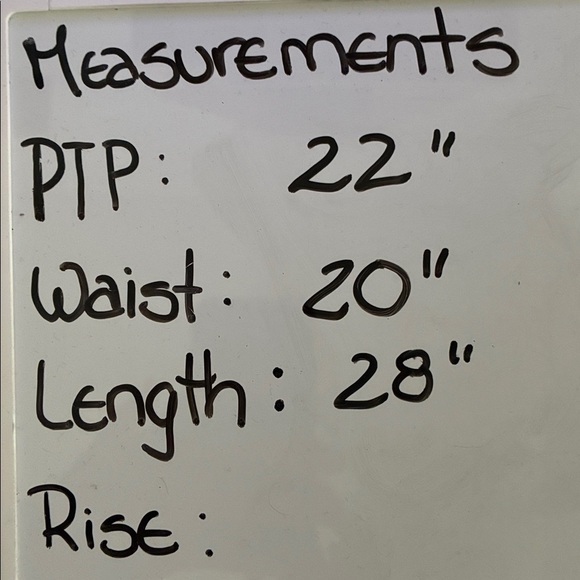 Measurements
PTP: 22"
Waist: 20"
Length: 28"
Rise: